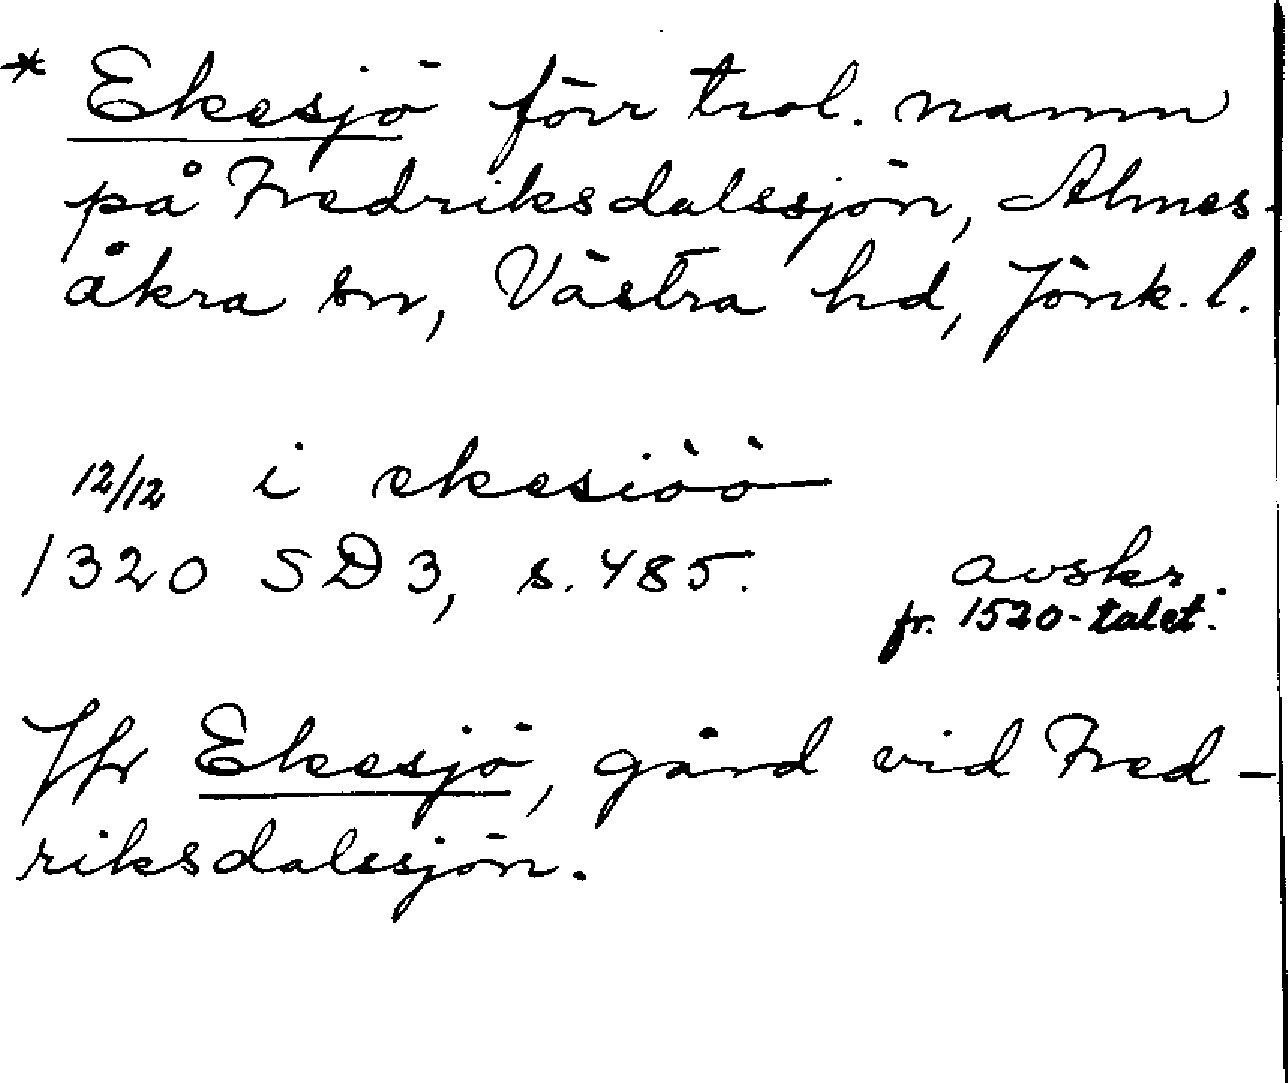 * Ekesjö förr trol. namn
på Fredriksdalssjön, Almes-
åkra sn, Västra hd, Jönk. l.
12/12 i ekesiöö
1320 SD 3, s. 485. avskr.
fr. 1520-talet.
Jfr Ekesjö, gård vid Fred-
riksdalssjön.